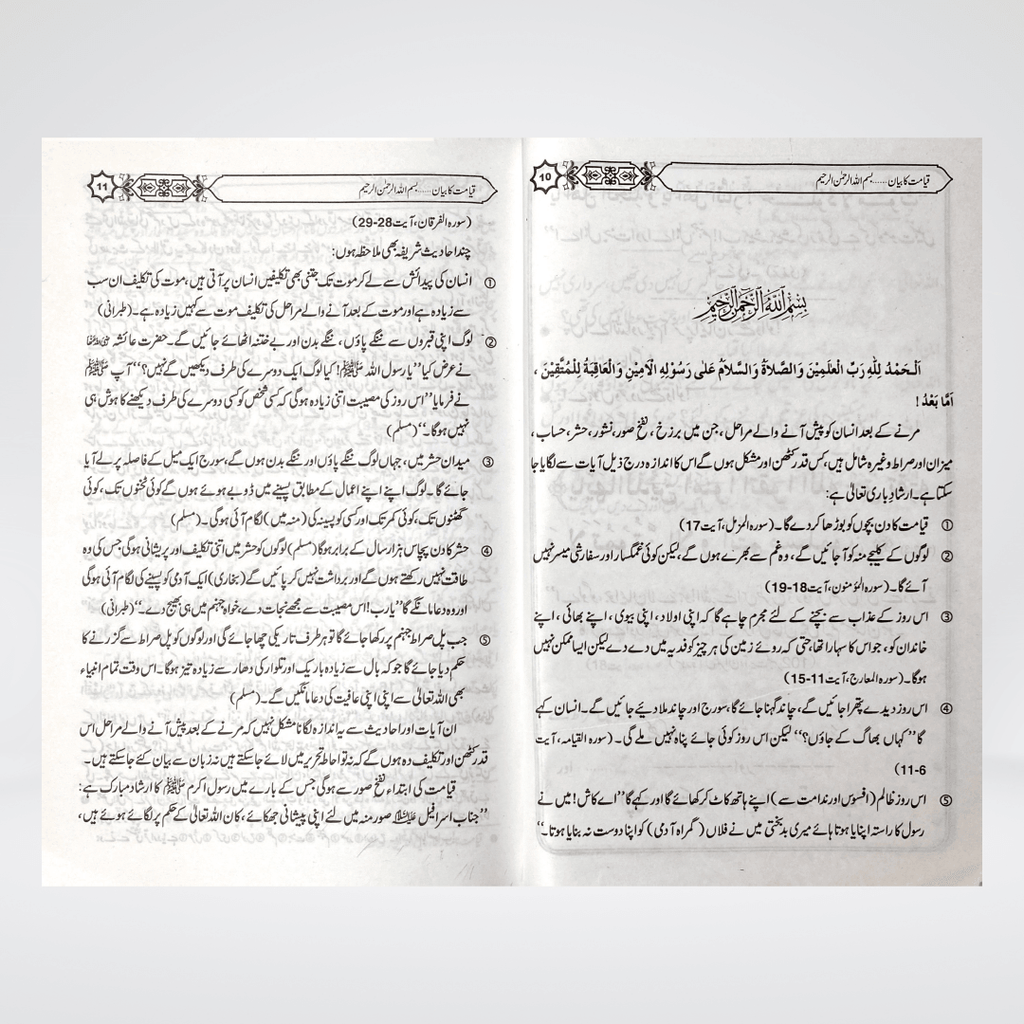 قیامت کا بیان ...... بسم اللہ الرحمٰن الرحیم
10
بِسْمِ اللّٰهِ الرَّحْمٰنِ الرَّحِيْمِ
اَلْحَمْدُ لِلّٰهِ رَبِّ الْعٰلَمِيْنَ وَالصَّلَاةُ وَالسَّلَامُ عَلٰى رَسُوْلِهِ الْاَمِيْنِ وَالْعَاقِبَةُ لِلْمُتَّقِيْنَ ،
اَمَّا بَعْدُ !
مرنے کے بعد انسان کو پیش آنے والے مراحل ، جن میں برزخ ، نفخ صور، نشور، حشر، حساب ،
میزان اور صراط وغیرہ شامل ہیں، کس قدر کٹھن اور مشکل ہوں گے اس کا اندازہ درج ذیل آیات سے لگایا جا
سکتا ہے۔ ارشادِ باری تعالیٰ ہے:
① قیامت کا دن بچوں کو بوڑھا کر دے گا۔ (سورہ المزمل، آیت 17)
② لوگوں کے کلیجے منہ کو آ جائیں گے، وہ غم سے بھرے ہوں گے، لیکن کوئی غمگسار اور سفارشی میسر نہیں
آئے گا۔ (سورہ المؤمنون، آیت 18-19)
③ اس روز کے عذاب سے بچنے کے لئے مجرم چاہے گا کہ اپنی اولاد، اپنی بیوی ، اپنے بھائی ، اپنے
خاندان کو، جو اس کا سہارا تھا، حتیٰ کہ روئے زمین کی ہر چیز کو فدیہ میں دے دے لیکن ایسا ممکن نہیں
ہوگا۔ (سورہ المعارج، آیت 11-15)
④ اس روز دیدے پتھرا جائیں گے، چاند گہنا جائے گا، سورج اور چاند ملا دیئے جائیں گے۔ انسان کہے
گا ’’کہاں بھاگ کے جاؤں؟‘‘ لیکن اس روز کوئی جائے پناہ نہیں ملے گی۔ (سورہ القیامہ، آیت
6-11)
⑤ اس روز ظالم (افسوس اور ندامت سے) اپنے ہاتھ کاٹ کر کھائے گا اور کہے گا ’’اے کاش! میں نے
رسول کا راستہ اپنایا ہوتا ہائے میری بدبختی میں نے فلاں (گمراہ آدمی) کو اپنا دوست نہ بنایا ہوتا۔‘‘
قیامت کا بیان ...... بسم اللہ الرحمٰن الرحیم
11
(سورہ الفرقان، آیت 28-29)
چند احادیث شریفہ بھی ملاحظہ ہوں:
① انسان کی پیدائش سے لے کر موت تک جتنی بھی تکلیفیں انسان پر آتی ہیں، موت کی تکلیف ان سب
سے زیادہ ہے اور موت کے بعد آنے والے مراحل کی تکلیف موت سے کہیں زیادہ ہے۔ (طبرانی)
② لوگ اپنی قبروں سے ننگے پاؤں ، ننگے بدن اور بے ختنہ اٹھائے جائیں گے۔ حضرت عائشہ رضی اللہ عنہا
نے عرض کیا ’’یا رسول اللہ ﷺ! کیا لوگ ایک دوسرے کی طرف دیکھیں گے نہیں؟‘‘ آپ ﷺ
نے فرمایا ’’اس روز کی مصیبت اتنی زیادہ ہوگی کہ کسی شخص کو کسی دوسرے کی طرف دیکھنے کا ہوش ہی
نہیں ہوگا۔‘‘ (مسلم)
③ میدان حشر میں، جہاں لوگ ننگے پاؤں اور ننگے بدن ہوں گے، سورج ایک میل کے فاصلہ پر لے آیا
جائے گا۔ لوگ اپنے اپنے اعمال کے مطابق پسینے میں ڈوبے ہوئے ہوں گے کوئی ٹخنوں تک، کوئی
گھٹنوں تک، کوئی کمر تک اور کسی کو پسینہ کی (منہ میں) لگام آئی ہوگی۔ (مسلم)
④ حشر کا دن پچاس ہزار سال کے برابر ہوگا (مسلم) لوگوں کو حشر میں اتنی تکلیف اور پریشانی ہوگی جس کی وہ
طاقت نہیں رکھتے ہوں گے اور برداشت نہیں کر پائیں گے (بخاری) ایک آدمی کو پسینے کی لگام آئی ہوگی
اور وہ دعا مانگے گا ’’یا رب! اس مصیبت سے مجھے نجات دے، خواہ جہنم میں ہی بھیج دے۔‘‘ (طبرانی)
⑤ جب پل صراط جہنم پر رکھا جائے گا تو ہر طرف تاریکی چھا جائے گی اور لوگوں کو پل صراط سے گزرنے کا
حکم دیا جائے گا جو کہ بال سے زیادہ باریک اور تلوار کی دھار سے زیادہ تیز ہوگا۔ اس وقت تمام انبیاء
بھی اللہ تعالیٰ سے اپنی اپنی عافیت کی دعا مانگیں گے۔ (مسلم)
ان آیات اور احادیث سے یہ اندازہ لگانا مشکل نہیں کہ مرنے کے بعد پیش آنے والے مراحل اس
قدر کٹھن اور تکلیف دہ ہوں گے کہ نہ تو احاطہ تحریر میں لائے جا سکتے ہیں نہ زبان سے بیان کئے جا سکتے ہیں۔
قیامت کی ابتداء نفخ صور سے ہوگی جس کے بارے میں رسول اکرم ﷺ کا ارشاد مبارک ہے:
’’جناب اسرافیل علیہ السلام صور منہ میں لئے اپنی پیشانی جھکائے، کان اللہ تعالیٰ کے حکم پر لگائے ہوئے ہیں،